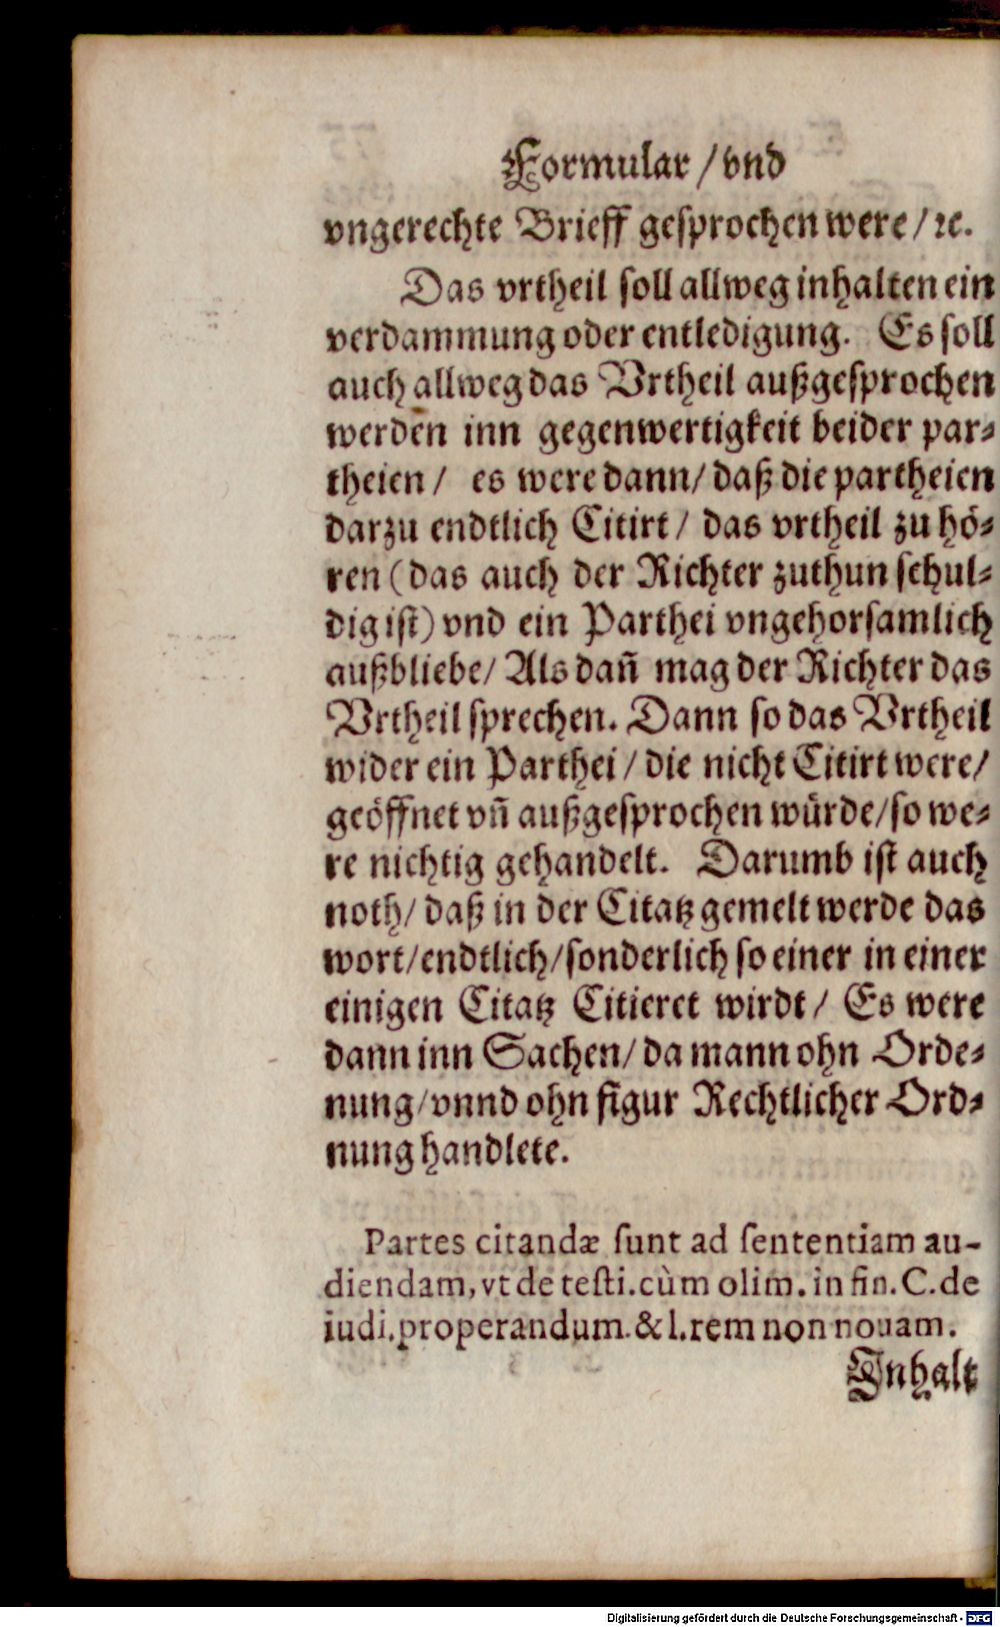 Formular / vnd
vngerechte Brieff gesprochen were / ꝛc.
Das vrtheil soll allweg inhalten ein
verdammung oder entledigung. Es soll
auch allweg das Vrtheil außgesprochen
werden inn gegenwertigkeit beider par⸗
theien / es were dann / daß die partheien
darzu endtlich Citirt / das vrtheil zu hö⸗
ren (das auch der Richter zuthun schul⸗
dig ist) vnd ein Parthei vngehorsamlich
außbliebe / Als dañ mag der Richter das
Vrtheil sprechen. Dann so das Vrtheil
wider ein Parthei / die nicht Citirt were /
geöffnet vñ außgesprochen würde / so we⸗
re nichtig gehandelt. Darumb ist auch
noth / daß in der Citatz gemelt werde das
wort / endtlich / sonderlich so einer in einer
einigen Citatz Citieret wirdt / Es were
dann inn Sachen / da mann ohn Orde⸗
nung / vnnd ohn figur Rechtlicher Ord⸗
nung handlete.
Partes citandæ ſunt ad ſententiam au-
diendam, vt de teſti. cùm olim. in fin. C. de
iudi. properandum. & l. rem non nouam.
Inhalt
Digitalisierung gefördert durch die Deutsche Forschungsgemeinschaft - DFG